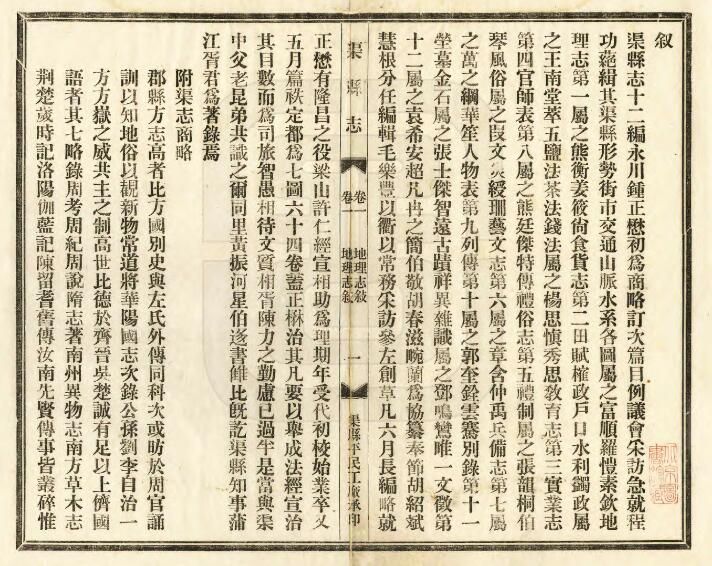 叙
渠縣志十二編永川鍾正懋初爲商略訂次篇目例議會采訪急就程
功蒓緝其渠縣形勢街市交通山脈水系各圖屬之富順羅憻素欽地
理志第一屬之熊衡姜筱尙食貨志第二田賦榷政戶口水利蠲政屬
之王南堂萃五鹽法茶法錢法屬之楊思愼秀思敎育志第三實業志
第四官師表第八屬之熊廷傑特傳禮俗志第五禮制屬之張韻桐伯
琴風俗屬之叚文炎綬珊藝文志第六屬之章含仲禹兵備志第七屬
之萬之綱華笙人物表第九列傳第十屬之郭奎銓雲騫別錄第十一
塋墓金石屬之張士傑智遠古蹟祥異雜識屬之鄧鳴鸞唯一文徵第
十二屬之袁希安超凡冉之簡伯敬胡春滋畹蘭爲協纂奉節胡紹斌
慧根分任編輯毛樂豐以衢以常務采訪參左創草凡六月長編略就
渠縣志
卷一 地理志敍
卷一 地理志敍
一
渠縣平民工廠承印
正懋有隆昌之役梁山許仁經宣相助爲理期年受代初稜始業卒乂
五月篇祑定都爲七圖六十四卷蓋正楙治其凡要以舉成法經宣治
其目數而爲司旅智愚相待文質相胥陳力之勤慮已過半是當與渠
中父老昆弟共識之爾同里黃振河星伯迻書雠比旣訖渠縣知事蒲
江胥君爲著錄焉
附渠志商略
郡縣方志高者比方國別史與左氏外傳同科次或昉於周官誦
訓以知地俗以覜新物常道將華陽國志次錄公孫劉李自治一
方方嶽之威共主之制高世比德於齊晉吳楚誠有足以上儕國
語者其七略錄周考周紀周說隋志著南州異物志南方草木志
荆楚歲時記洛陽伽藍記陳留耆舊傳汝南先賢傳事皆叢碎惟